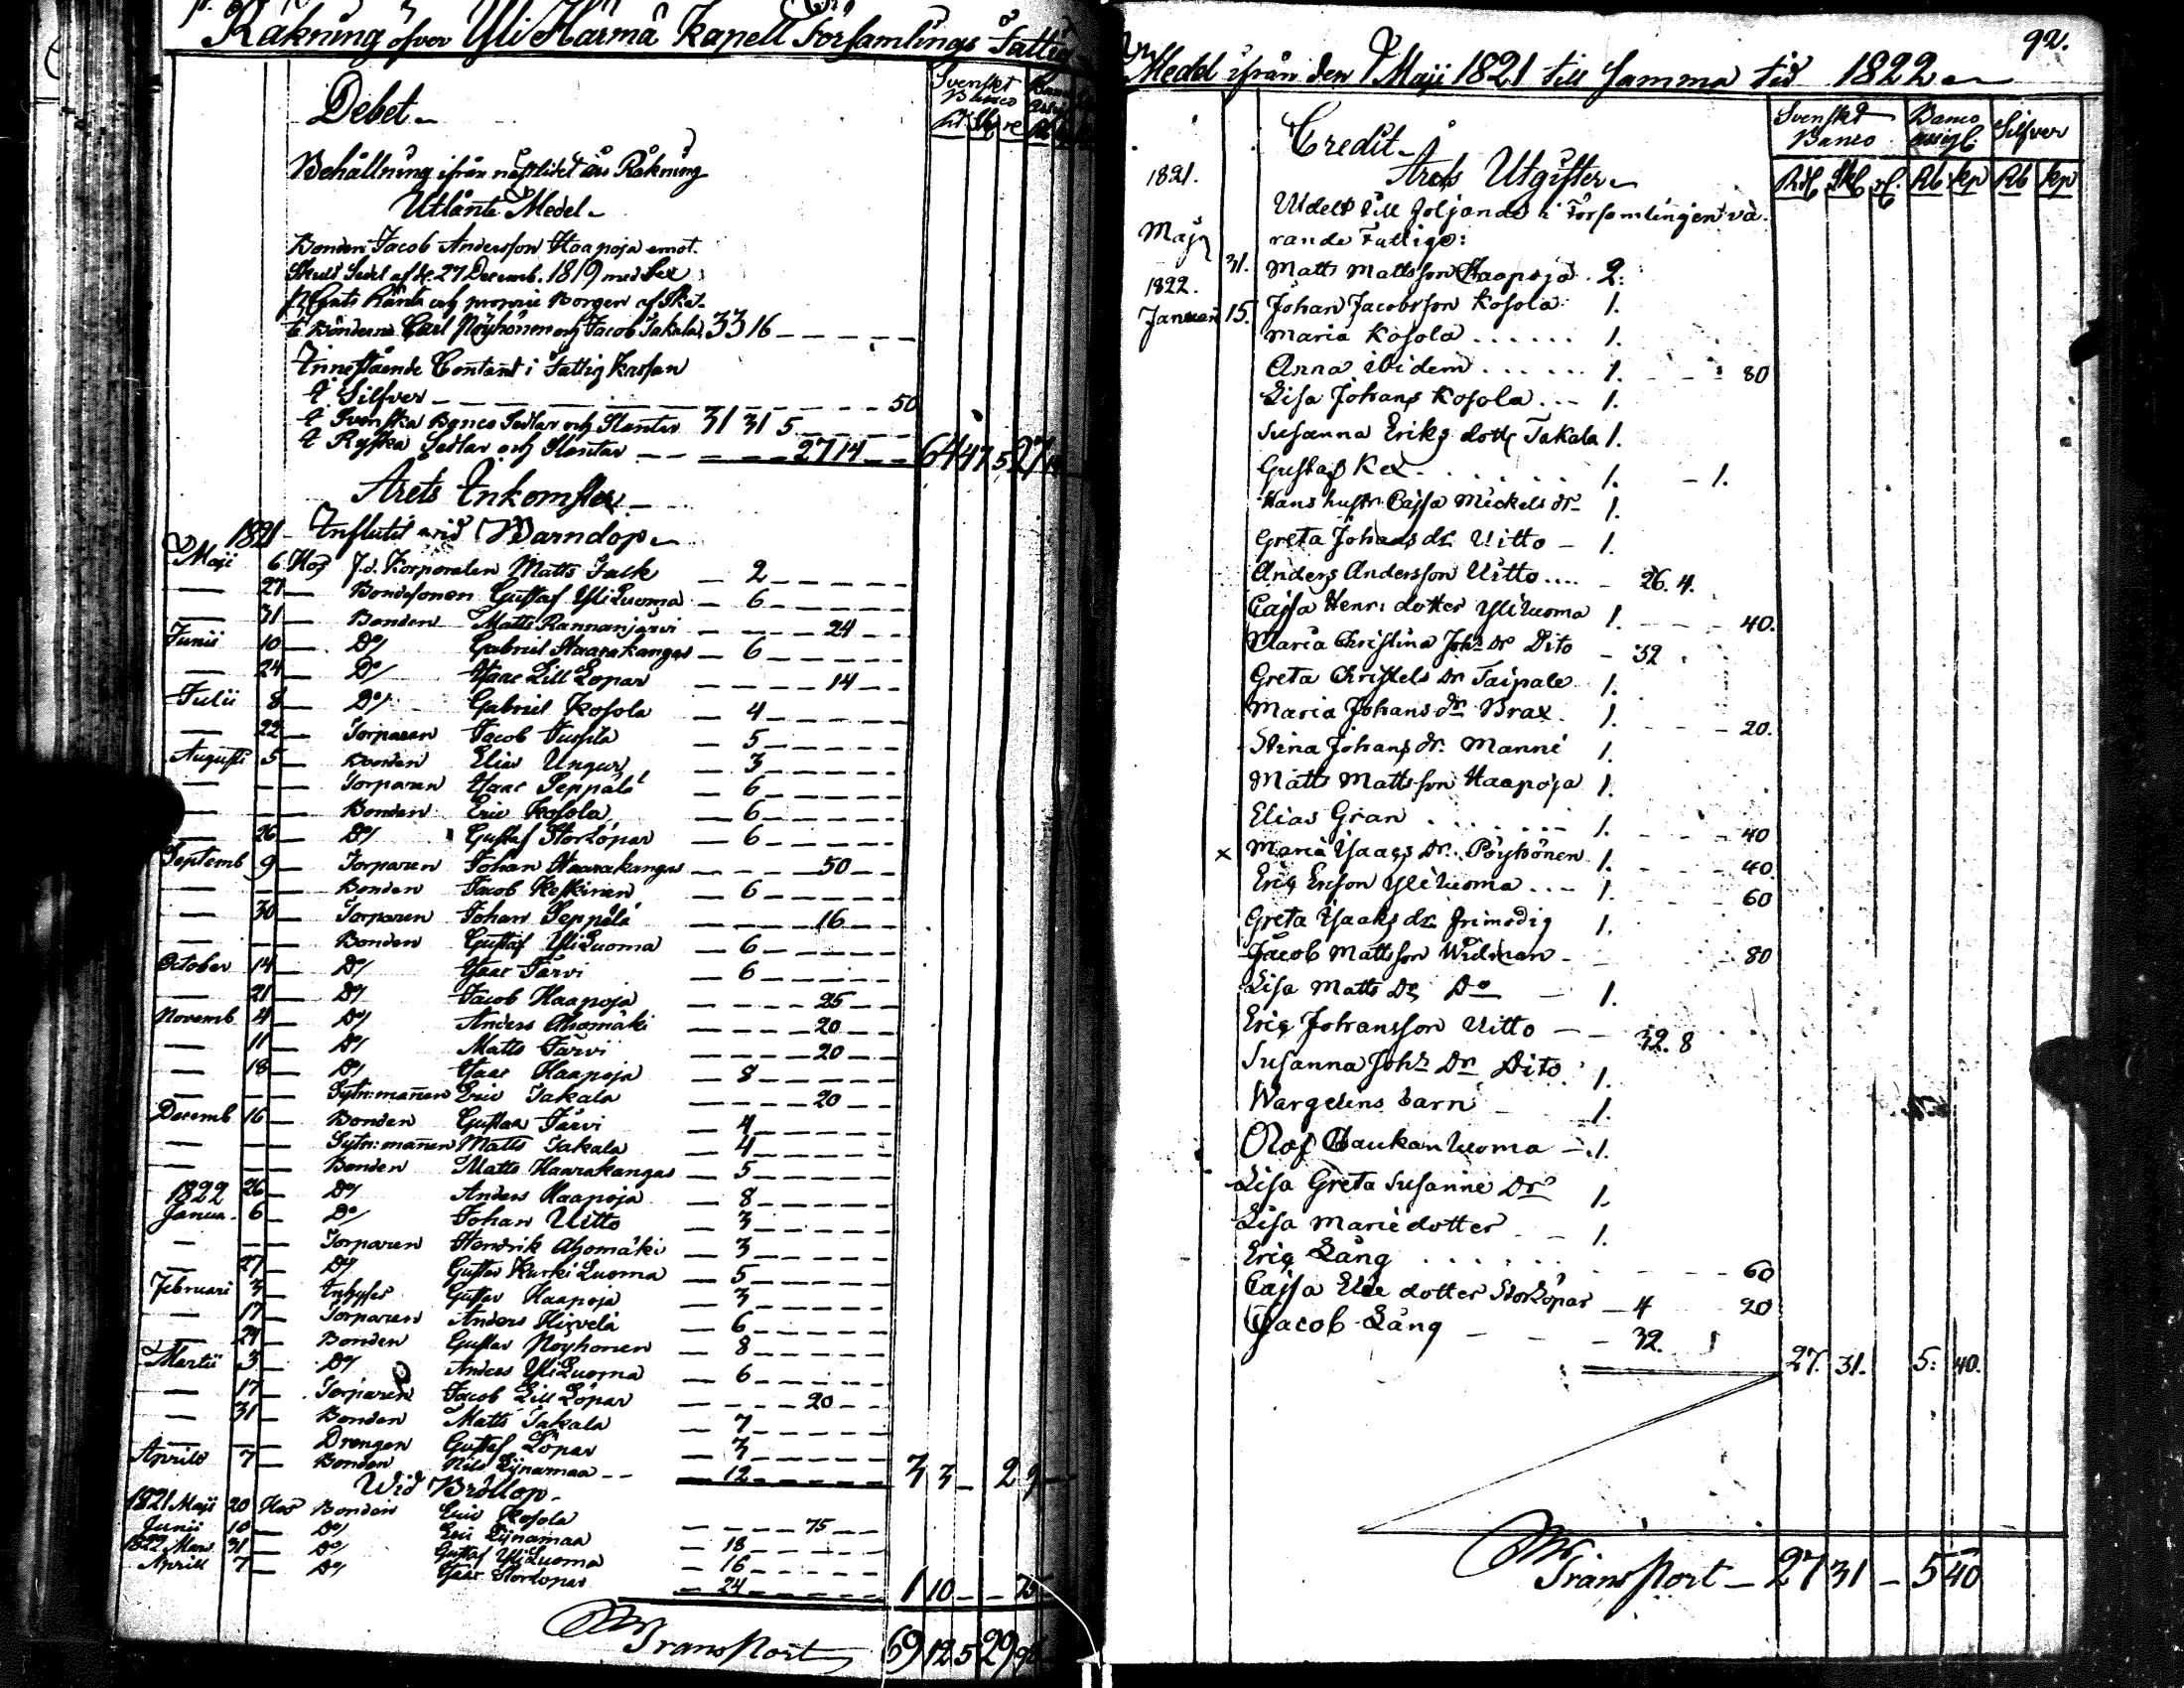 Räkning öfver Yli Härmä Kapell Församlings Fattig
Debet
Svenskt Banco
Behållning ifrån nästlidet års Räkning
Utlånte Medel
Bonden Jacob Andersson Haapoja emot
Skuld Sedel af d. 27 Decemb. 1819 med Sex
Cents Ränta och proprie Borgen af
Bönderne Carl Pöyhönen och Jacob Takala 33 16
Innestående Contant i Fattig Kassan
I Silfver 50
I Svenska Banco Sedlar och Slantar 31 31 5
I Ryska Sedlar och Slantar 27 14 64 47 5 27 14
Arets Inkomster
1821 Influtit vid Barndop
Maji 6 Hos f.d. Korporalen Matts Jack 2
27 Bondesonen Gustaf YliLuoma 6
31 Bonden Matts Rannanjärvi 24
Junii 10 Do Gabriel Haarakangas 6
24 Do Isaac Lill Lopar 14
Julii 8 Do Gabriel Kosola 4
22 Torparen Jacob Tuntila 5
Augusti 5 Bonden Elias Ungur 3
Torparen Isaac Seppälä 6
Bonden Eric Kosola 6
26 Do Gustaf StorLöpar 6
Septemb 9 Torparen Johan Haarakangas 50
Bonden Jacob Keskinen 6
30 Torparen Johan Seppälä 16
Bonden Gustaf YliLuoma 6
October 14 Do Isaac Järvi 6
21 Do Jacob Haapoja 25
Novemb 4 Do Anders Ahomäki 20
11 Do Matts Järvi 20
18 Do Isaac Haapoja 8
Sytn:mannen Eric Takala 20
Decemb 16 Bonden Gustaa Järvi 4
Sytn:mannen Matts Takala 4
Bonden Matts Haarakangas 5
26 Do Anders Haapoja 8
1822
Janua. 6 Do Johan Uitto 3
Torparen Hendrik Ahomäki 3
27 Do Gustav Kurki Luoma 5
Februari 3 Inhyses Gustav Haapoja 3
17 Torparen Anders Hirvelä 6
24 Bonden Gustav Pöyhönen 8
Martii 3 Do Anders YliLuoma 6
17 Torparen Jacob Lill Löpar 20
31 Bonden Matts Takala 7
Drengen Gustaf Löpar 3
Aprill 7 Bonden Nils Lijnamaa 12 3 3 2 9
Wid Bröllop
1821 Maji 20 Hos Bonden Eric Kosola 75
Junii 10 Do Eric Lijnamaa 18
1822 Mars 31 Do Gustaf YliLuoma 16
Aprill 7 Do Isaac Storlopar 24 1 10 75
Transport 69 12 5 29 98
92.
Medel ifrån den 1 Maji 1821 till samma tid 1822
Credit
Svenskt Banco Banco assigl: Silfver
Rd Sk r. Rb kp Rb kp
Arets Utgifter
1821.
Utdelt till följande i Församlingen va-
rande Fattige:
Maji 31. Matts Mattsson Haapoja 2:
1822.
Januari 15. Johan Jacobsson Kosola 1.
Maria Kosola 1.
Anna ibidem 1. 80
Lisa Johans Kosola 1.
Susanna Eriks dotr Takala 1.
Gustaf Kex 1. 1.
Hans hustr: Cajsa Mickels dr 1.
Greta Johans dr. Uitto 1.
Anders Andersson Uitto 26. 4.
Cajsa Henr: dotter Yliluoma 1. 40.
Maria Christina Johs Dr Dito 32
Greta Christels Dr Taipale 1.
Maria Johans dr Brax 1. 20.
Stina Johans dr. Manne 1.
Matts Mattsson Haapoja 1.
Elias Gran 1. 40
x Maria Isaacs Dr. Pöyhönen 1. 40
Eriq Ericson Yliluoma 1. 60
Greta Isaaks dr. Frimodig 1.
Jacob Mattsson Widman 80
Lisa Matts Dr Do 1.
Eriq Johansson Uitto 32. 8
Susanna Johs Dr Dito 1.
Wargelins barn 1.
Olof Haukanluoma 1.
Lisa Greta Susanne Dr 1.
Lisa Marie dotter 1.
Eriq Lång 60
Cajsa Elie dotter StorLöpar 4 20
Jacob Lång 32.
27. 31. 5: 40.
Transport 27 31 5 40